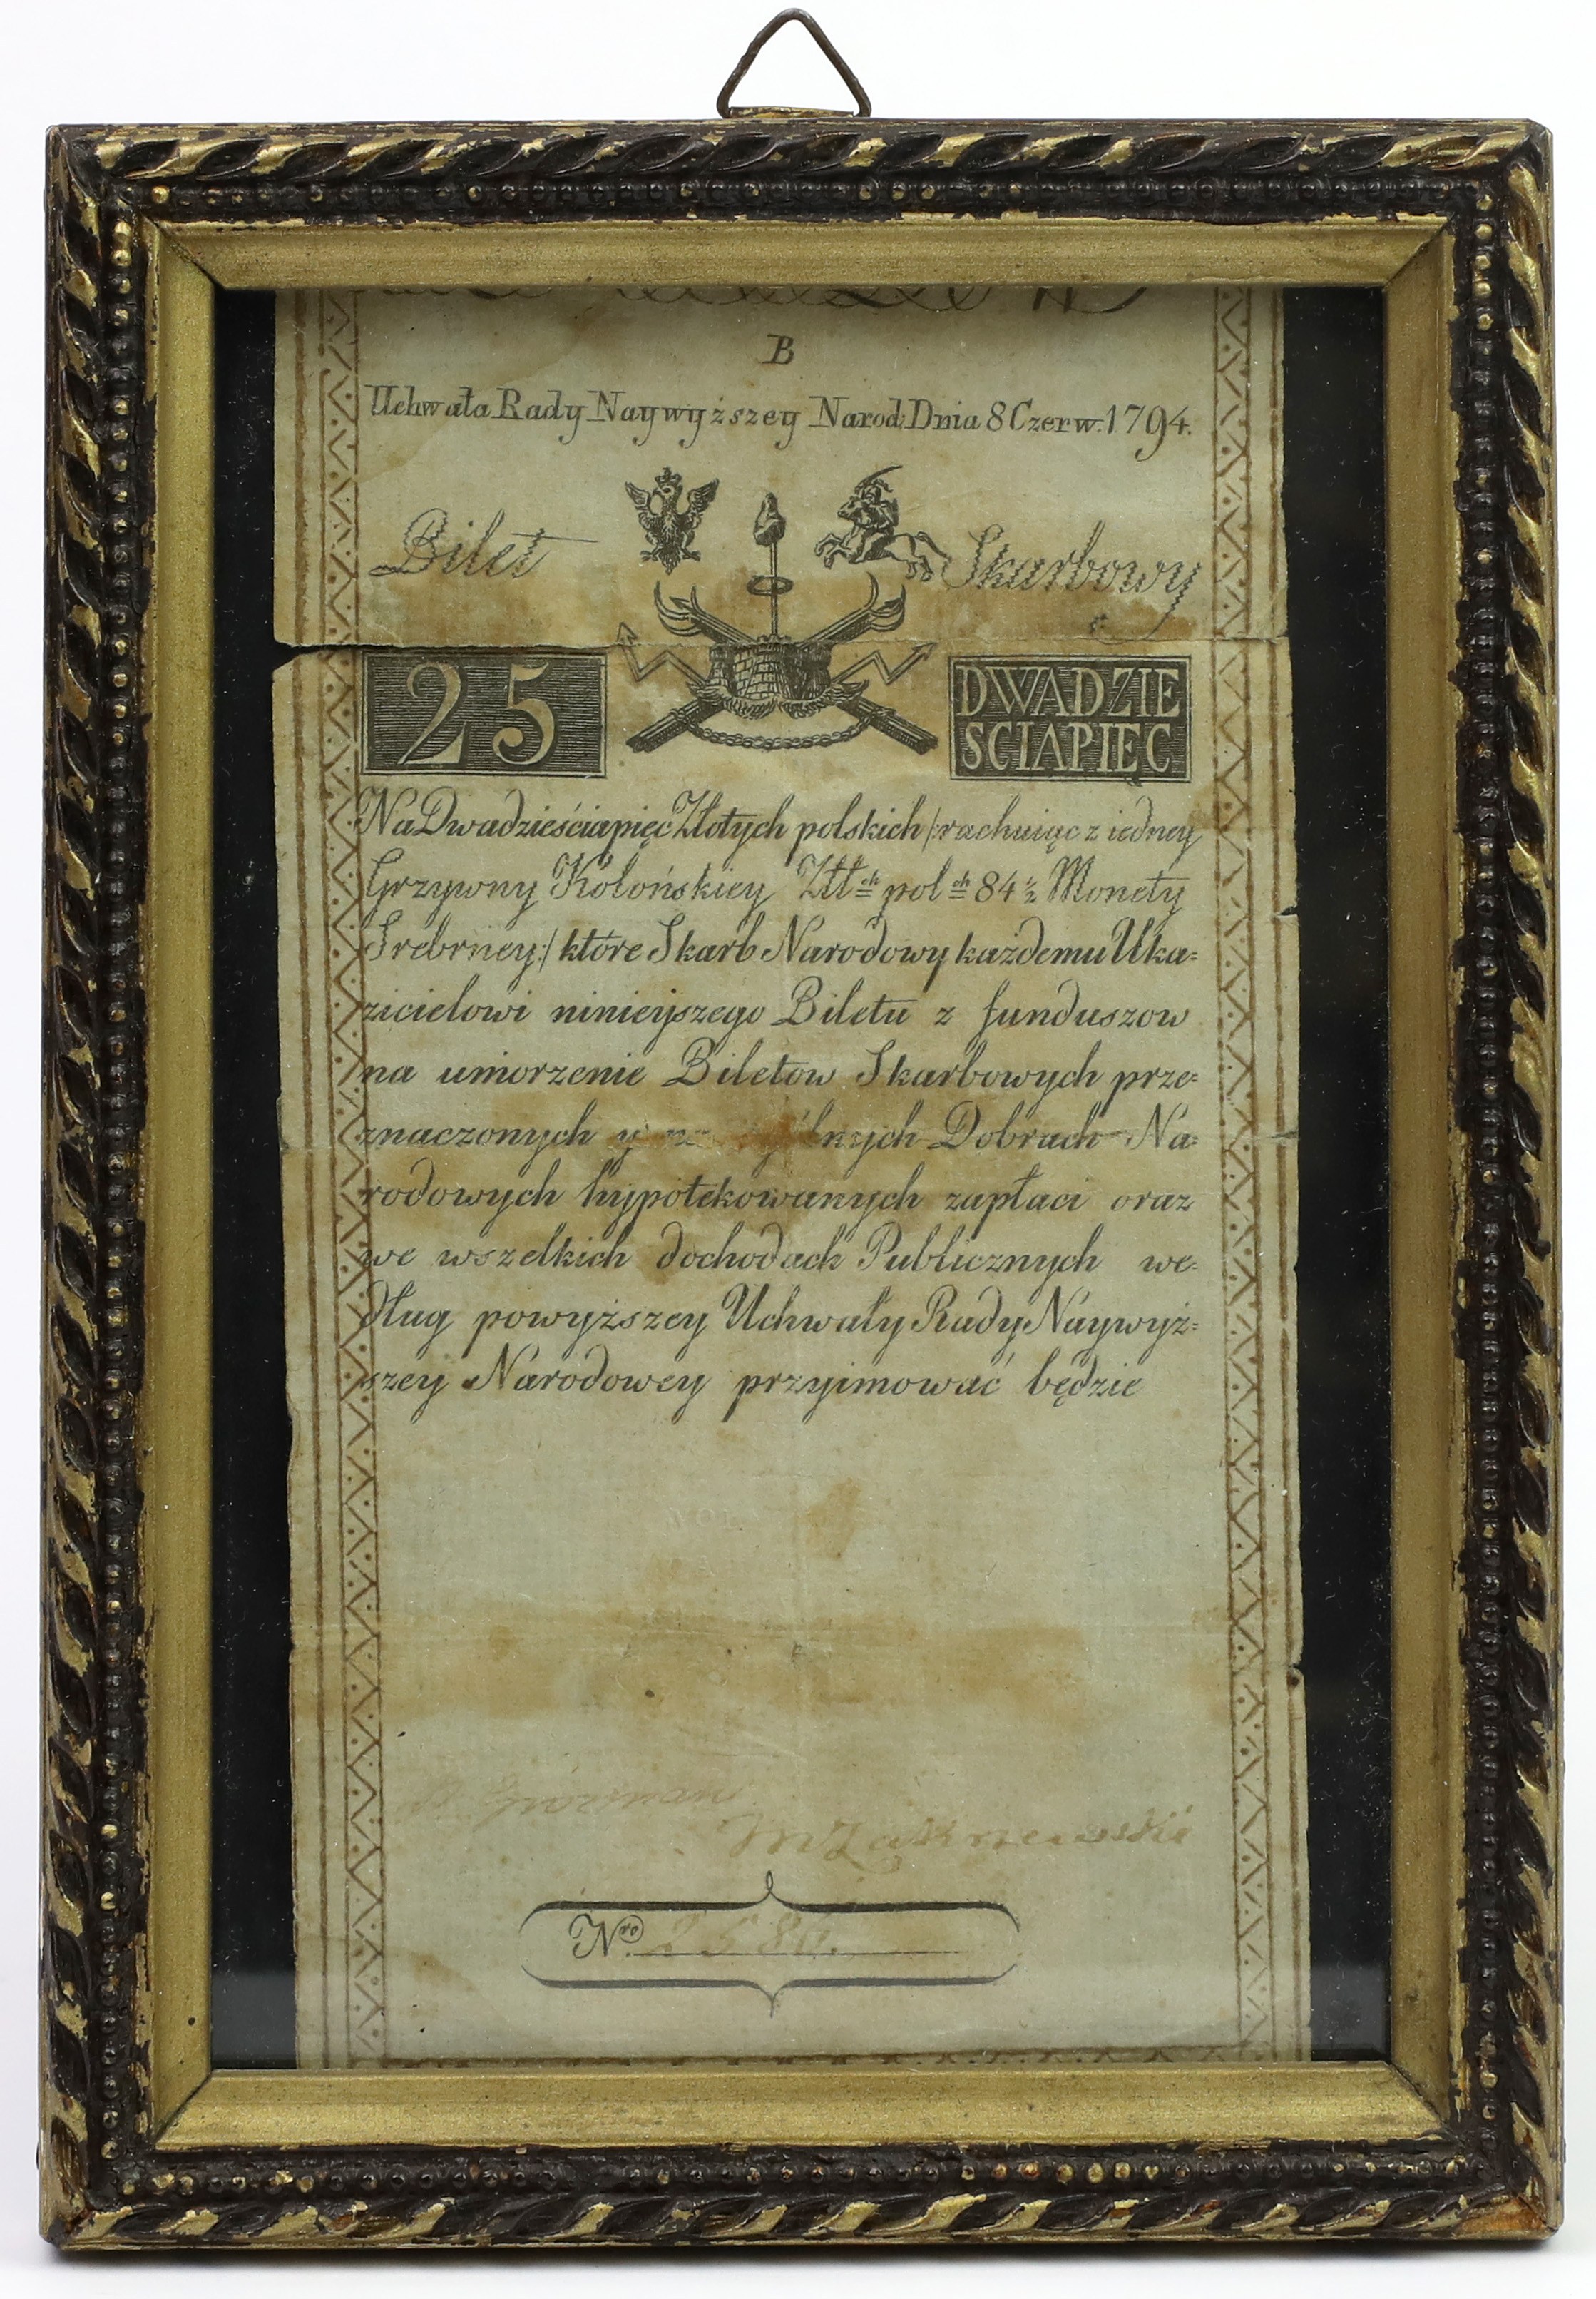 B
Uchwała Rady Naywyższey Narod: Dnia 8 Czerw. 1794.
Bilet Skarbowy
25 DWADZIE
SCIAPIĘC
Na Dwadzieściapięć Złotych polskich /:rachuiąc z iedney
Grzywny Kolońskiey Złł ch pol ch 84 ½ Monety
Srebrney:/ które Skarb Narodowy każdemu Uka=
zicielowi ninieyszego Biletu z funduszow
na umorzenie Biletow Skarbowych prze=
znaczonych y na lnych Dobrach Na=
rodowych hypotekowanych zapłaci oraz
we wszelkich dochodach Publicznych we=
dług powyższey Uchwały Rady Naywyż=
szey Narodowey przyimować będzie
MZakrzewski
Nro